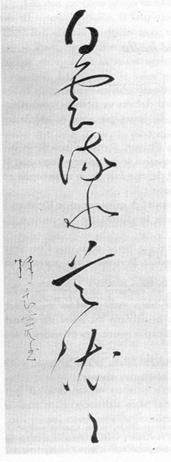 白雲流水共依々